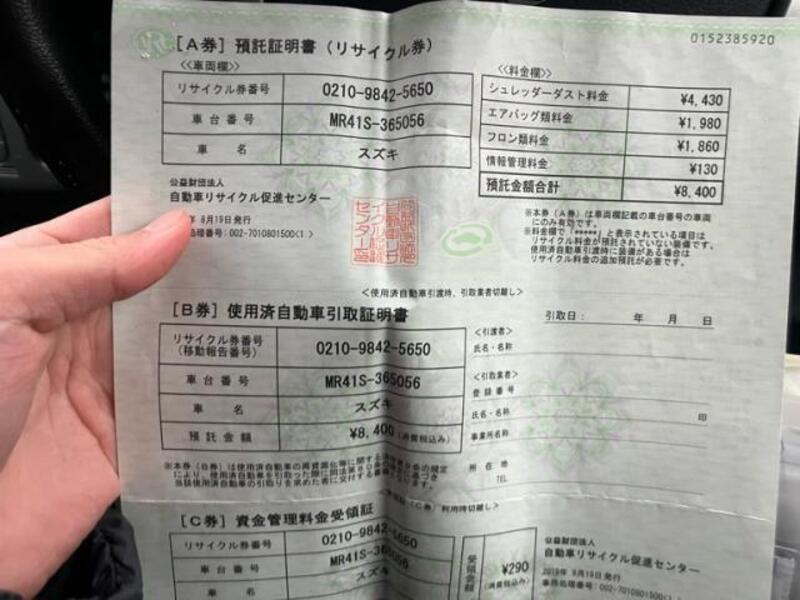 0152385920
[A券] 預託証明書 (リサイクル券)
≪車両欄≫
リサイクル券番号 0210-9842-5650
車台番号 MR41S-365056
車名 スズキ
≪料金欄≫
シュレッダーダスト料金 ¥4,430
エアバッグ類料金 ¥1,980
フロン類料金 ¥1,860
情報管理料金 ¥130
預託金額合計 ¥8,400
公益財団法人
自動車リサイクル促進センター
年 8月19日発行
処理番号:002-7010801500(1 )
※本券(A券)は車両欄記載の車台番号の車両
にのみ有効です。
※料金欄で「*****」と表示されている項目は
リサイクル料金が預託されていない装備です。
使用済自動車引渡時に装備がある場合は
リサイクル料金の追加預託が必要です。
<使用済自動車引渡時、引取業者切離し>
[B券] 使用済自動車引取証明書
リサイクル券番号
(移動報告番号) 0210-9842-5650
車台番号 MR41S-365056
車名 スズキ
預託金額 ¥8,400 (消費税込み)
引取日: 年 月 日
<引渡者>
氏名・名称
<引取業者>
登録番号
氏名・名称 印
事業所名称
所在地
TEL
※本券(B券)は使用済自動車の再資源化等に関する法律第80条の規定
により、使用済自動車を引取った際に同法第80条に基づき
当該使用済自動車の引取りを求めた者に交付する書面となります。
(C券)利用時切離し>
[C券] 資金管理料金受領証
リサイクル券番号 0210-9842-5650
車台番号 MR41S-365056
車名 スズキ
受領金額 ¥290
(消費税込み)
公益財団法人
自動車リサイクル促進センター
2019年 8月19日発行
事務処理番号:002-7010801500(1